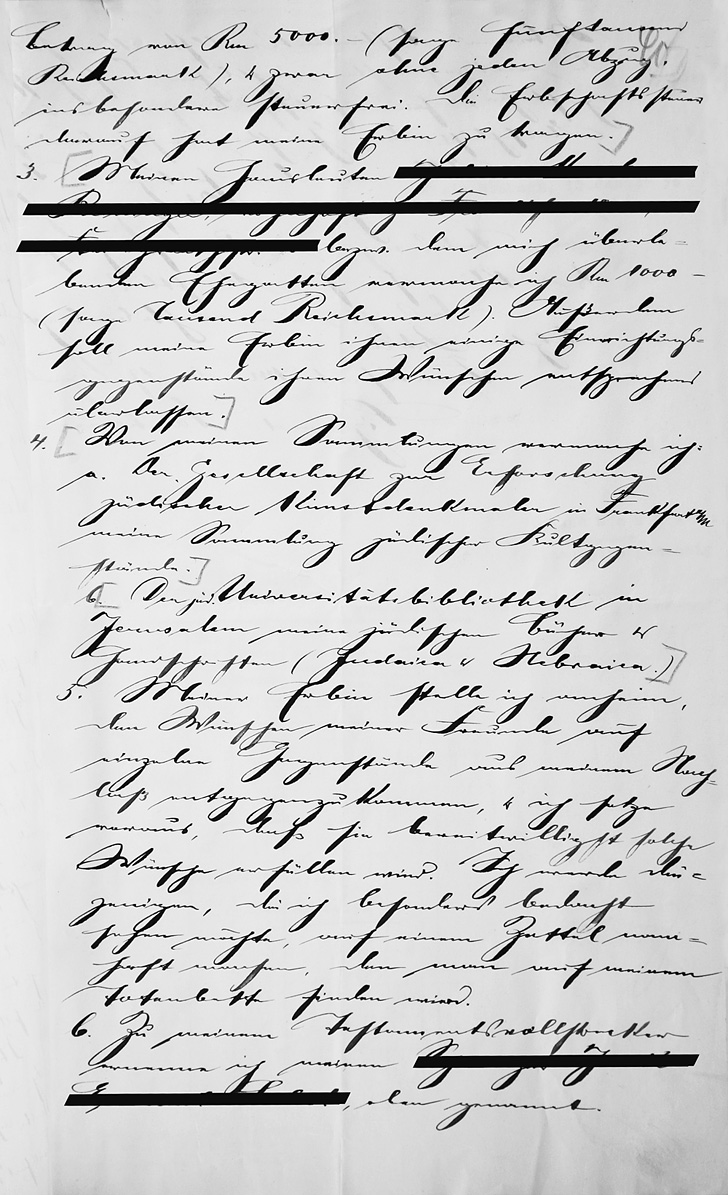 betrag von Rm 5000.– (sage fünftausend
Reichsmark), & zwar ohne jeden Abzug,
insbesondere steuerfrei. Die Erbschaftssteuer
darauf hat meine Erbin zu tragen.]
3. [Meinen Hausleuten
bezw. dem mich überle=
benden Ehegatten vermache ich Rm 1000–
(sage tausend Reichsmark). Außerdem
soll meine Erbin ihnen einige Einrichtungs=
gegenstände ihren Wünschen entsprechend
überlassen.]
4. [Von meinen Sammlungen vermache ich:
a. Der Gesellschaft zur Erforschung
jüdischer Kunstdenkmäler in Frankfurt a/M
meine Sammlung jüdischer Kultgegen=
stände.]
b. [Der jüd. Universitätsbibliothek in
Jerusalem meine jüdischen Bücher &
Handschriften (Judaica & Hebraica.)]
5. Meiner Erbin stelle ich anheim,
den Wünschen meiner Freunde auf
einzelne Gegenstände aus meinem Nach=
laß entgegenzukommen, & ich setze
voraus, daß sie bereitwilligst solche
Wünsche erfüllen wird. Ich werde die=
jenigen, die ich besonders bedacht
sehen möchte, auf einem Zettel nam=
haft machen, den man auf meinem
Totenbette finden wird.
6. Zu meinem Testamentsvollstrecker
ernenne ich meinen
, oben genannt.